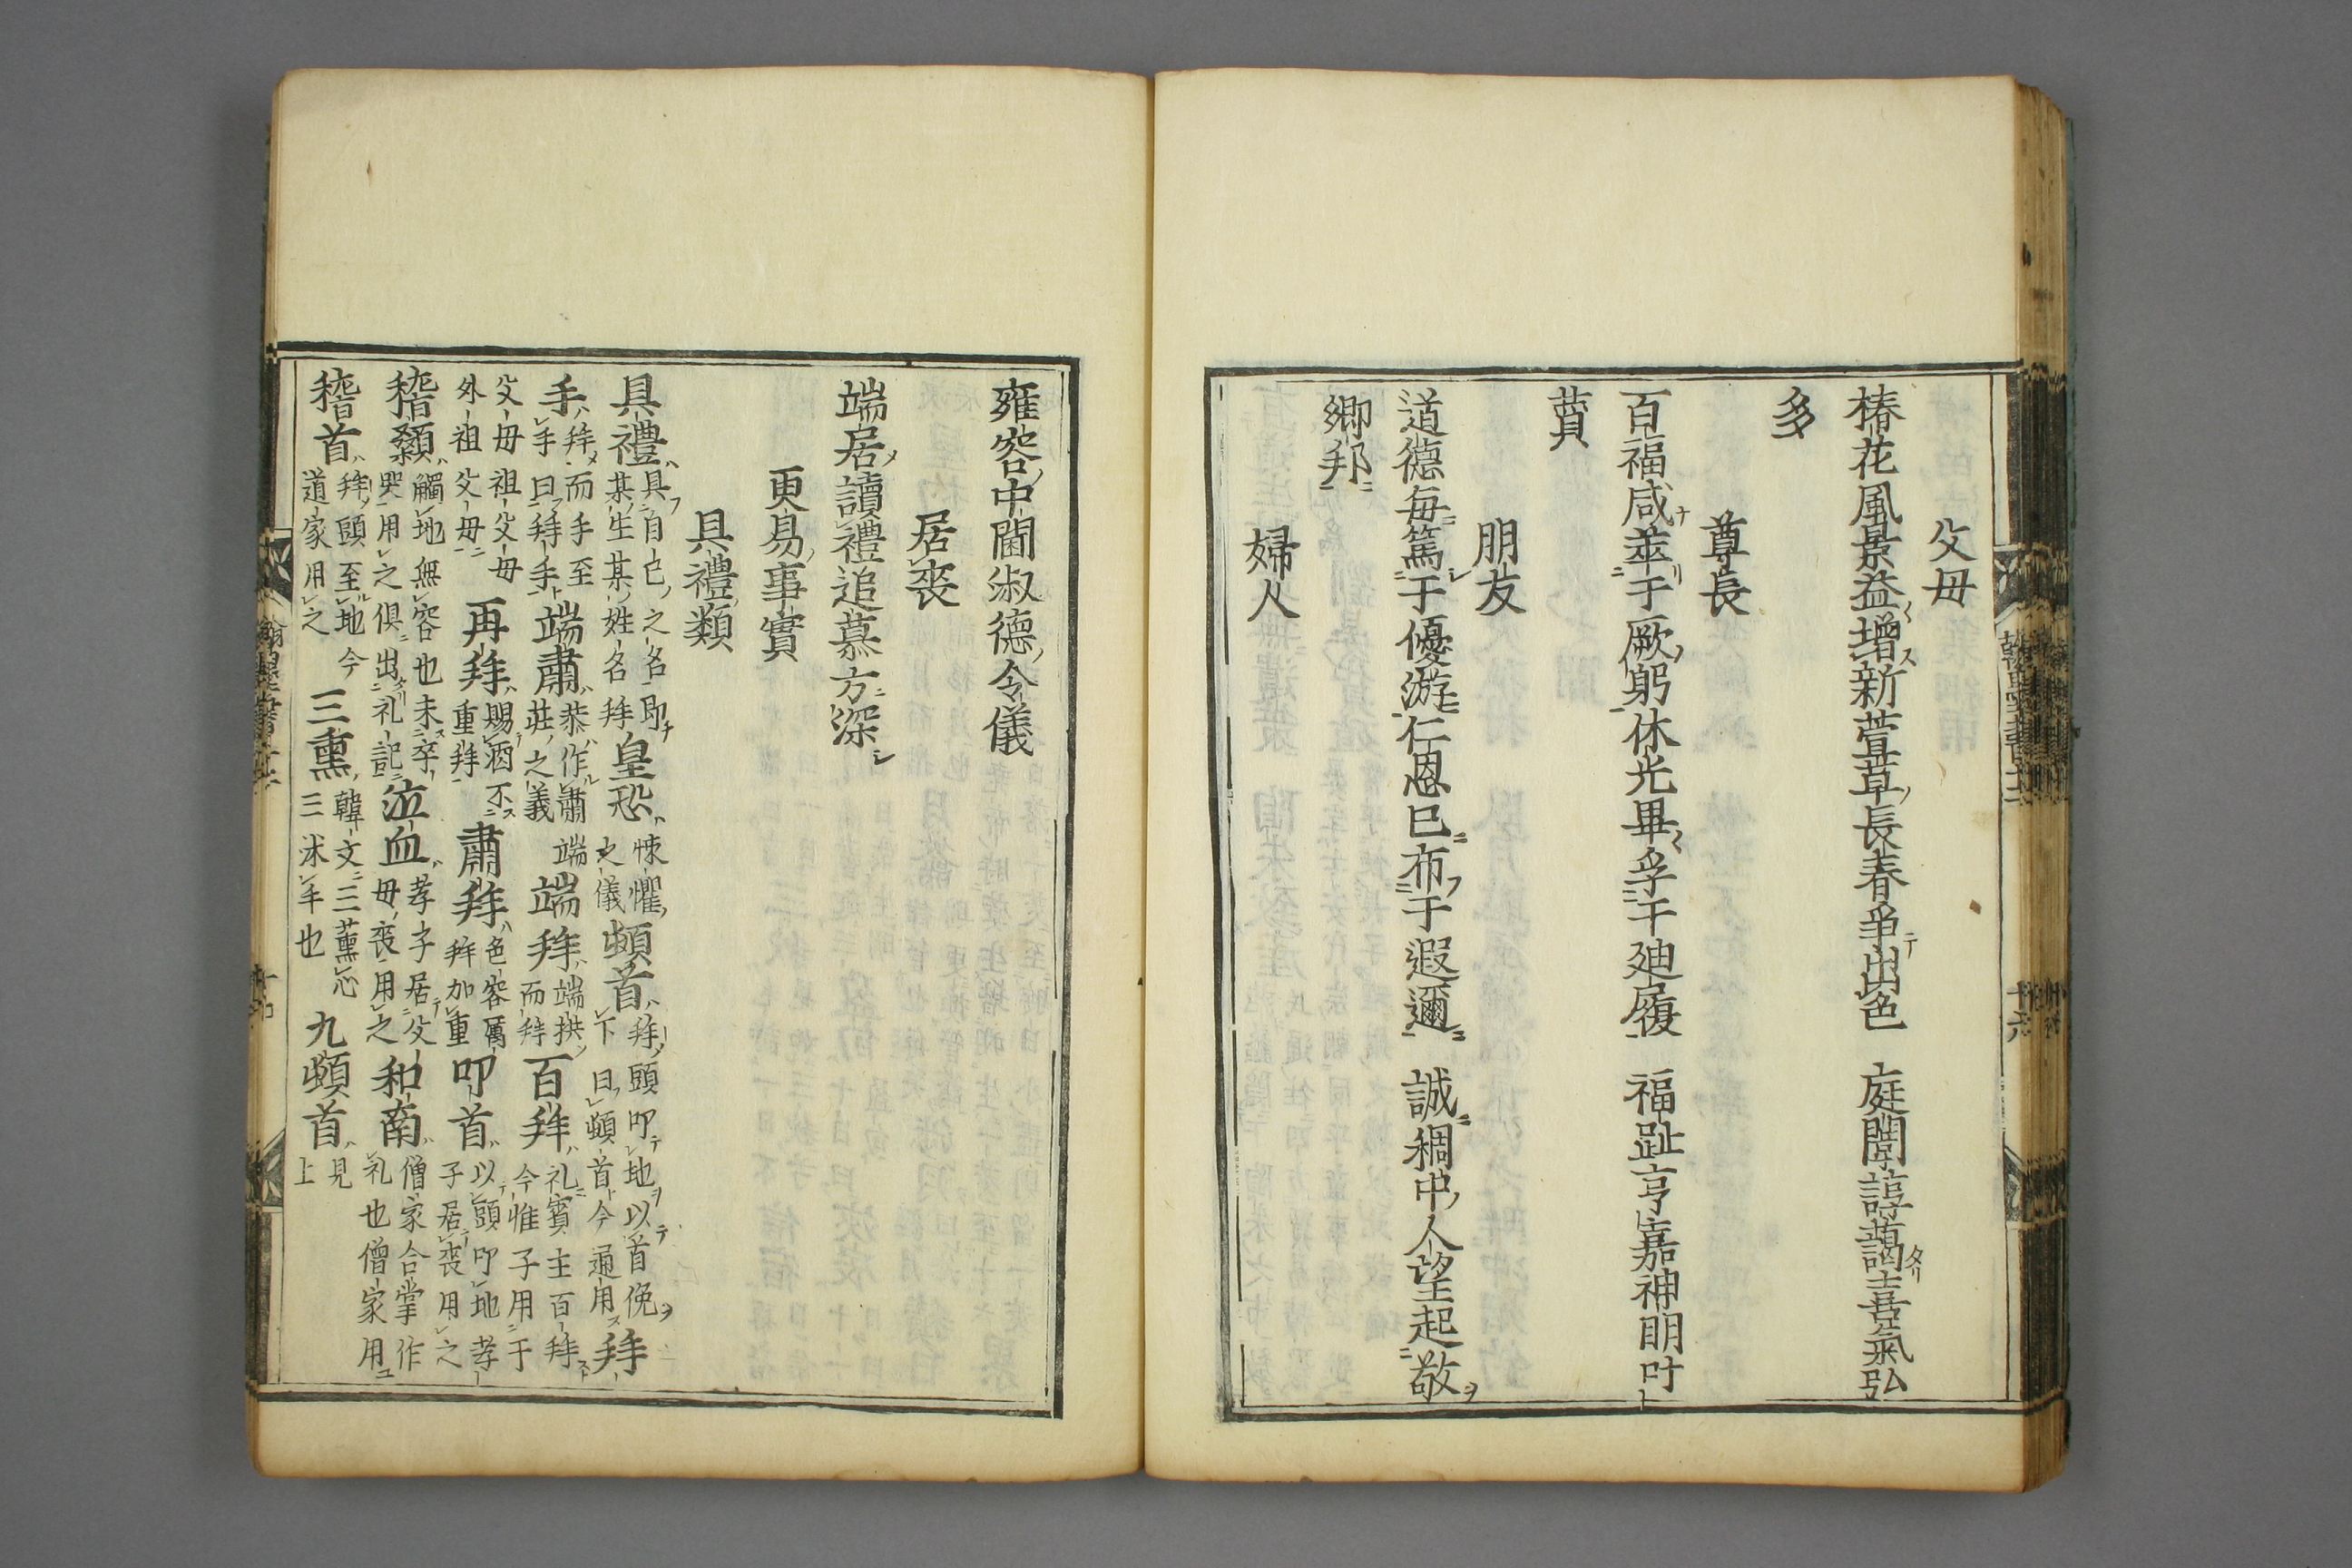 父母
椿花風景益増新萱草長春爭出色 庭闈諄藹喜氣弘
多
尊長
百福咸萃于厥躬休光畢孚于廸履 福祉亨嘉神明叶
賛
朋友
道德每篤于優游仁恩已布于遐邇 誠稠中人望起敬
鄉邦
婦人
雍容中閫淑德令儀
居喪
端居讀禮追慕方深
更易事實
具禮類
具禮 具自己之名即某生某姓名拜 皇恐 悚懼之儀 頓首 拜頭叩地以首俛下曰頓首今通用 拜
手 拜而手至手曰拜手 端肅 恭作肅莊之義 端拜 端拱而拜 百拜 礼賓主百拜今惟子用于
父母祖父母外祖父母 再拜 賜酒不重拜 肅拜 色容厲拜加重 叩首 以頭叩地孝子居喪用之
稽顙 觸地無容也未卒哭用之俱出礼記 泣血 孝子居父母喪用之 和南 僧家合掌作礼也僧家用
稽首 拜頭至地今道家用之 三熏 韓文三薰三沐手也 九頓首 見上